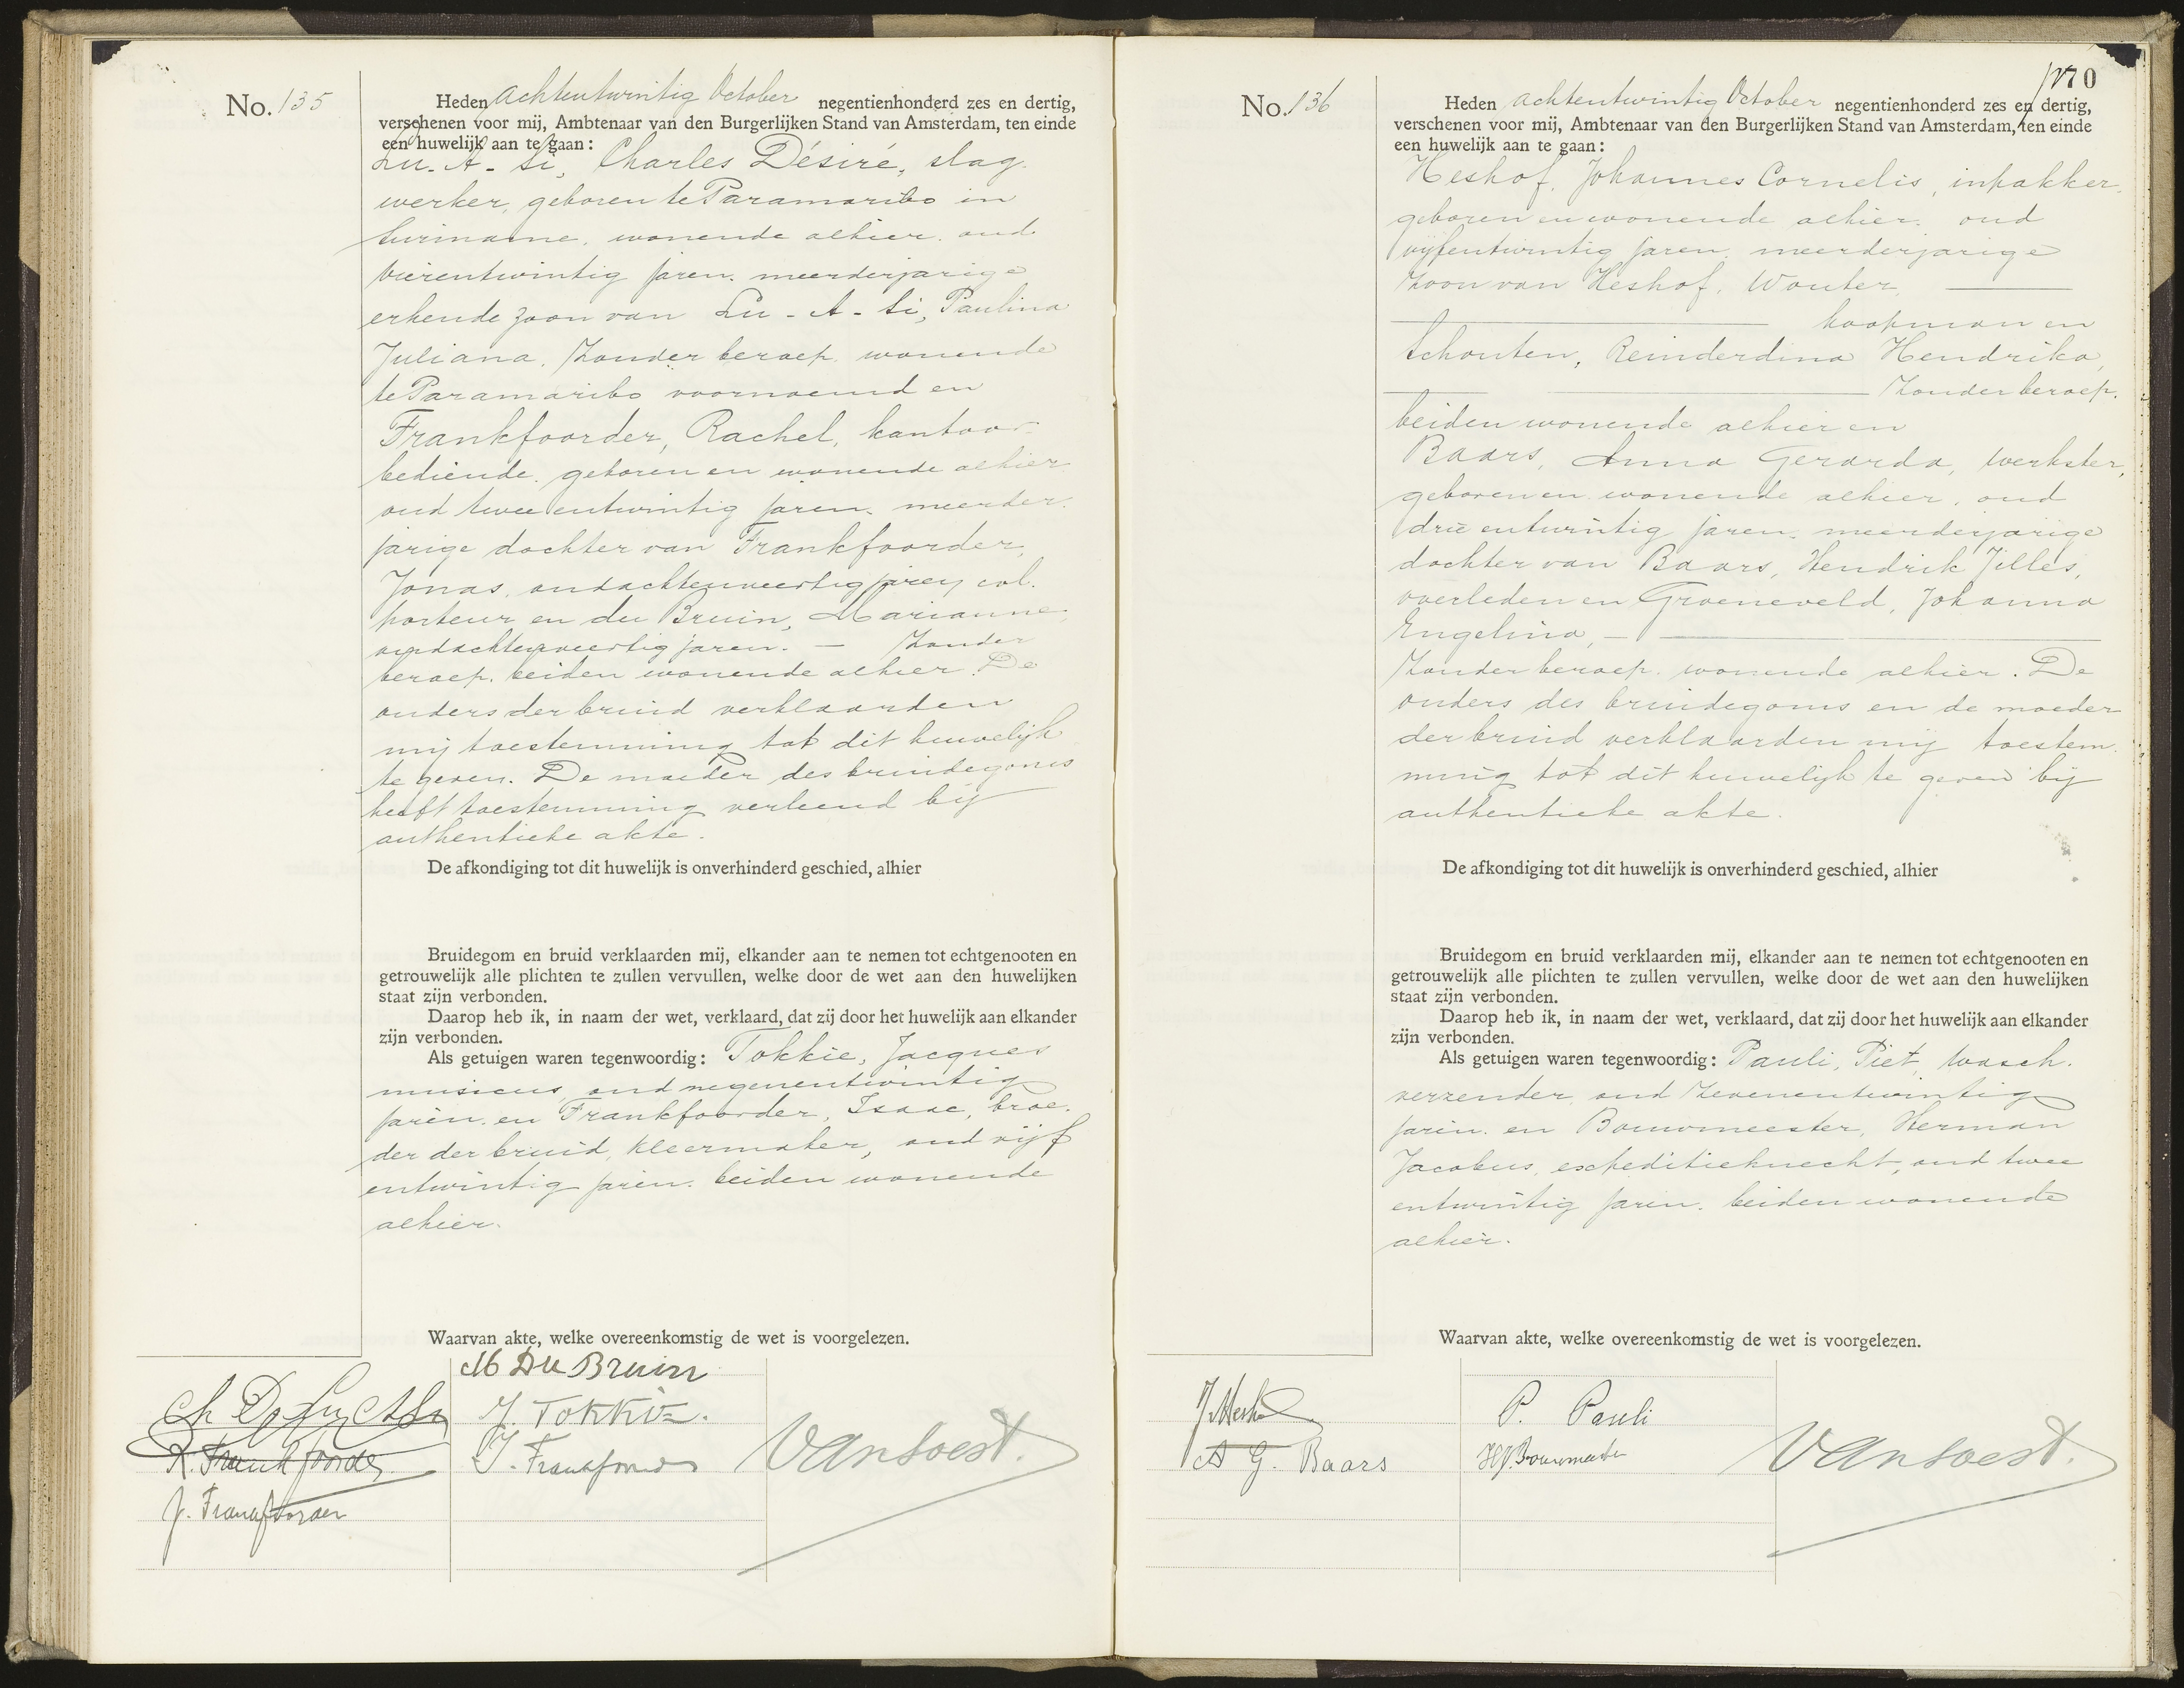 No. 135
Heden achtentwintig October negentienhonderd zes en dertig,
verschenen voor mij, Ambtenaar van den Burgerlijken Stand van Amsterdam, ten einde
een huwelijk aan te gaan:
Lu-A-Si, Charles Désiré, slag
werker, geboren te Paramaribo in
Suriname, wonende alhier, oud
vierentwintig jaren, meerderjarige
erkende zoon van Lu-A-Si, Paulina
Juliana, zonder beroep, wonende
te Paramaribo voornoemd en
Frankfoorder, Rachel, kantoor-
bediende, geboren en wonende alhier
oud twee entwintig jaren, meerder-
jarige dochter van Frankfoorder,
Jonas, oud achtenveertig jaren, col-
porteur en du Bruin, Marianne,
oud achtenveertig jaren. — zonder
beroep, beiden wonende alhier. De
ouders der bruid verklaarden
mij toestemming tot dit huwelijk
te geven. De moeder des bruidegoms
heeft toestemming verleend bij
authentieke akte.
De afkondiging tot dit huwelijk is onverhinderd geschied, alhier
Bruidegom en bruid verklaarden mij, elkander aan te nemen tot echtgenooten en
getrouwelijk alle plichten te zullen vervullen, welke door de wet aan den huwelijken
staat zijn verbonden.
Daarop heb ik, in naam der wet, verklaard, dat zij door het huwelijk aan elkander
zijn verbonden.
Als getuigen waren tegenwoordig: Tokkie, Jacques
musicus, oud negenentwintig
jaren, en Frankfoorder, Isaac, broe-
der der bruid, kleermaker, oud vijf
entwintig jaren, beiden wonende
alhier.
Waarvan akte, welke overeenkomstig de wet is voorgelezen.
M Du Bruin
J. Tokkie.
R. Frankfoorder
I. Frankfoorder
van Soest.
J. Frankfoorder
170
No. 136
Heden achtentwintig October negentienhonderd zes en dertig,
verschenen voor mij, Ambtenaar van den Burgerlijken Stand van Amsterdam, ten einde
een huwelijk aan te gaan:
Heshof, Johannes Cornelis, inpakker,
geboren en wonende alhier, oud
vijfentwintig jaren, meerderjarige
zoon van Heshof, Wouter,
koopman en
Schouten, Reinderdina Hendrika,
zonder beroep,
beiden wonende alhier en
Baars, Anna Gerarda, werkster,
geboren en wonende alhier, oud
drie entwintig jaren, meerderjarige
dochter van Baars, Hendrik Jilles,
overleden en Groeneveld, Johanna
Engelina, —
zonder beroep, wonende alhier. De
ouders des bruidegoms en de moeder
der bruid verklaarden mij toestem-
ming tot dit huwelijk te geven bij
authentieke akte.
De afkondiging tot dit huwelijk is onverhinderd geschied, alhier
Bruidegom en bruid verklaarden mij, elkander aan te nemen tot echtgenooten en
getrouwelijk alle plichten te zullen vervullen, welke door de wet aan den huwelijken
staat zijn verbonden.
Daarop heb ik, in naam der wet, verklaard, dat zij door het huwelijk aan elkander
zijn verbonden.
Als getuigen waren tegenwoordig: Pauli, Piet, wasch-
verzender, oud zevenentwintig
jaren, en Bouwmeester, Herman
Jacobus, expeditieknecht, oud twee
entwintig jaren, beiden wonende
alhier.
Waarvan akte, welke overeenkomstig de wet is voorgelezen.
P. Pauli
A G. Baars
HJ. Bouwmeester
van Soest.